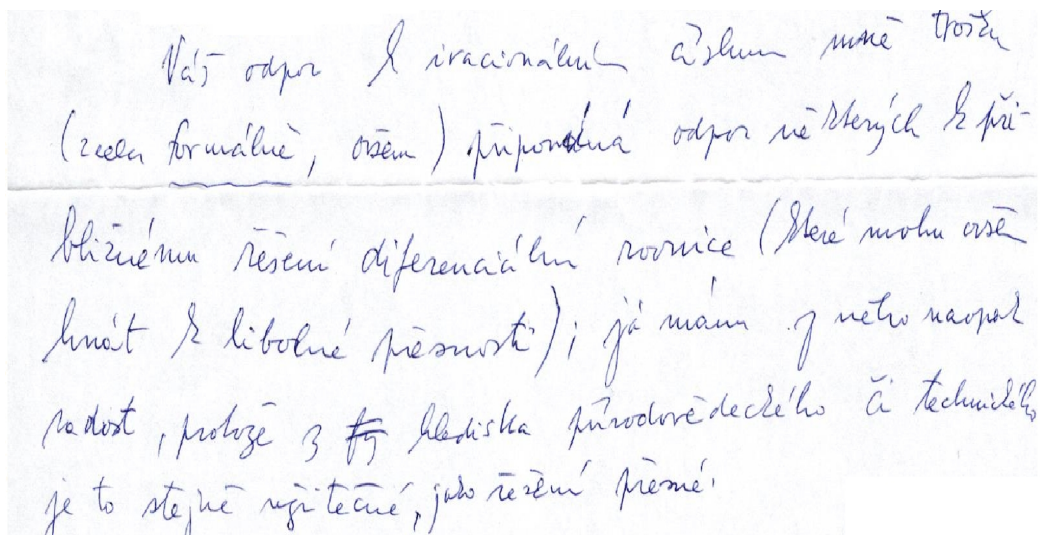 Váš odpor k iracionálním číslům mně trošku
(zcela formálně, ovšem) připomíná odpor některých k při-
bližnému řešení diferenciální rovnice (které mohu ovšem
hnát k libovolné přesnosti); já mám z něho naopak
radost, protože z hlediska přírodovědeckého či technického
je to stejně užitečné, jako řešení přesné.